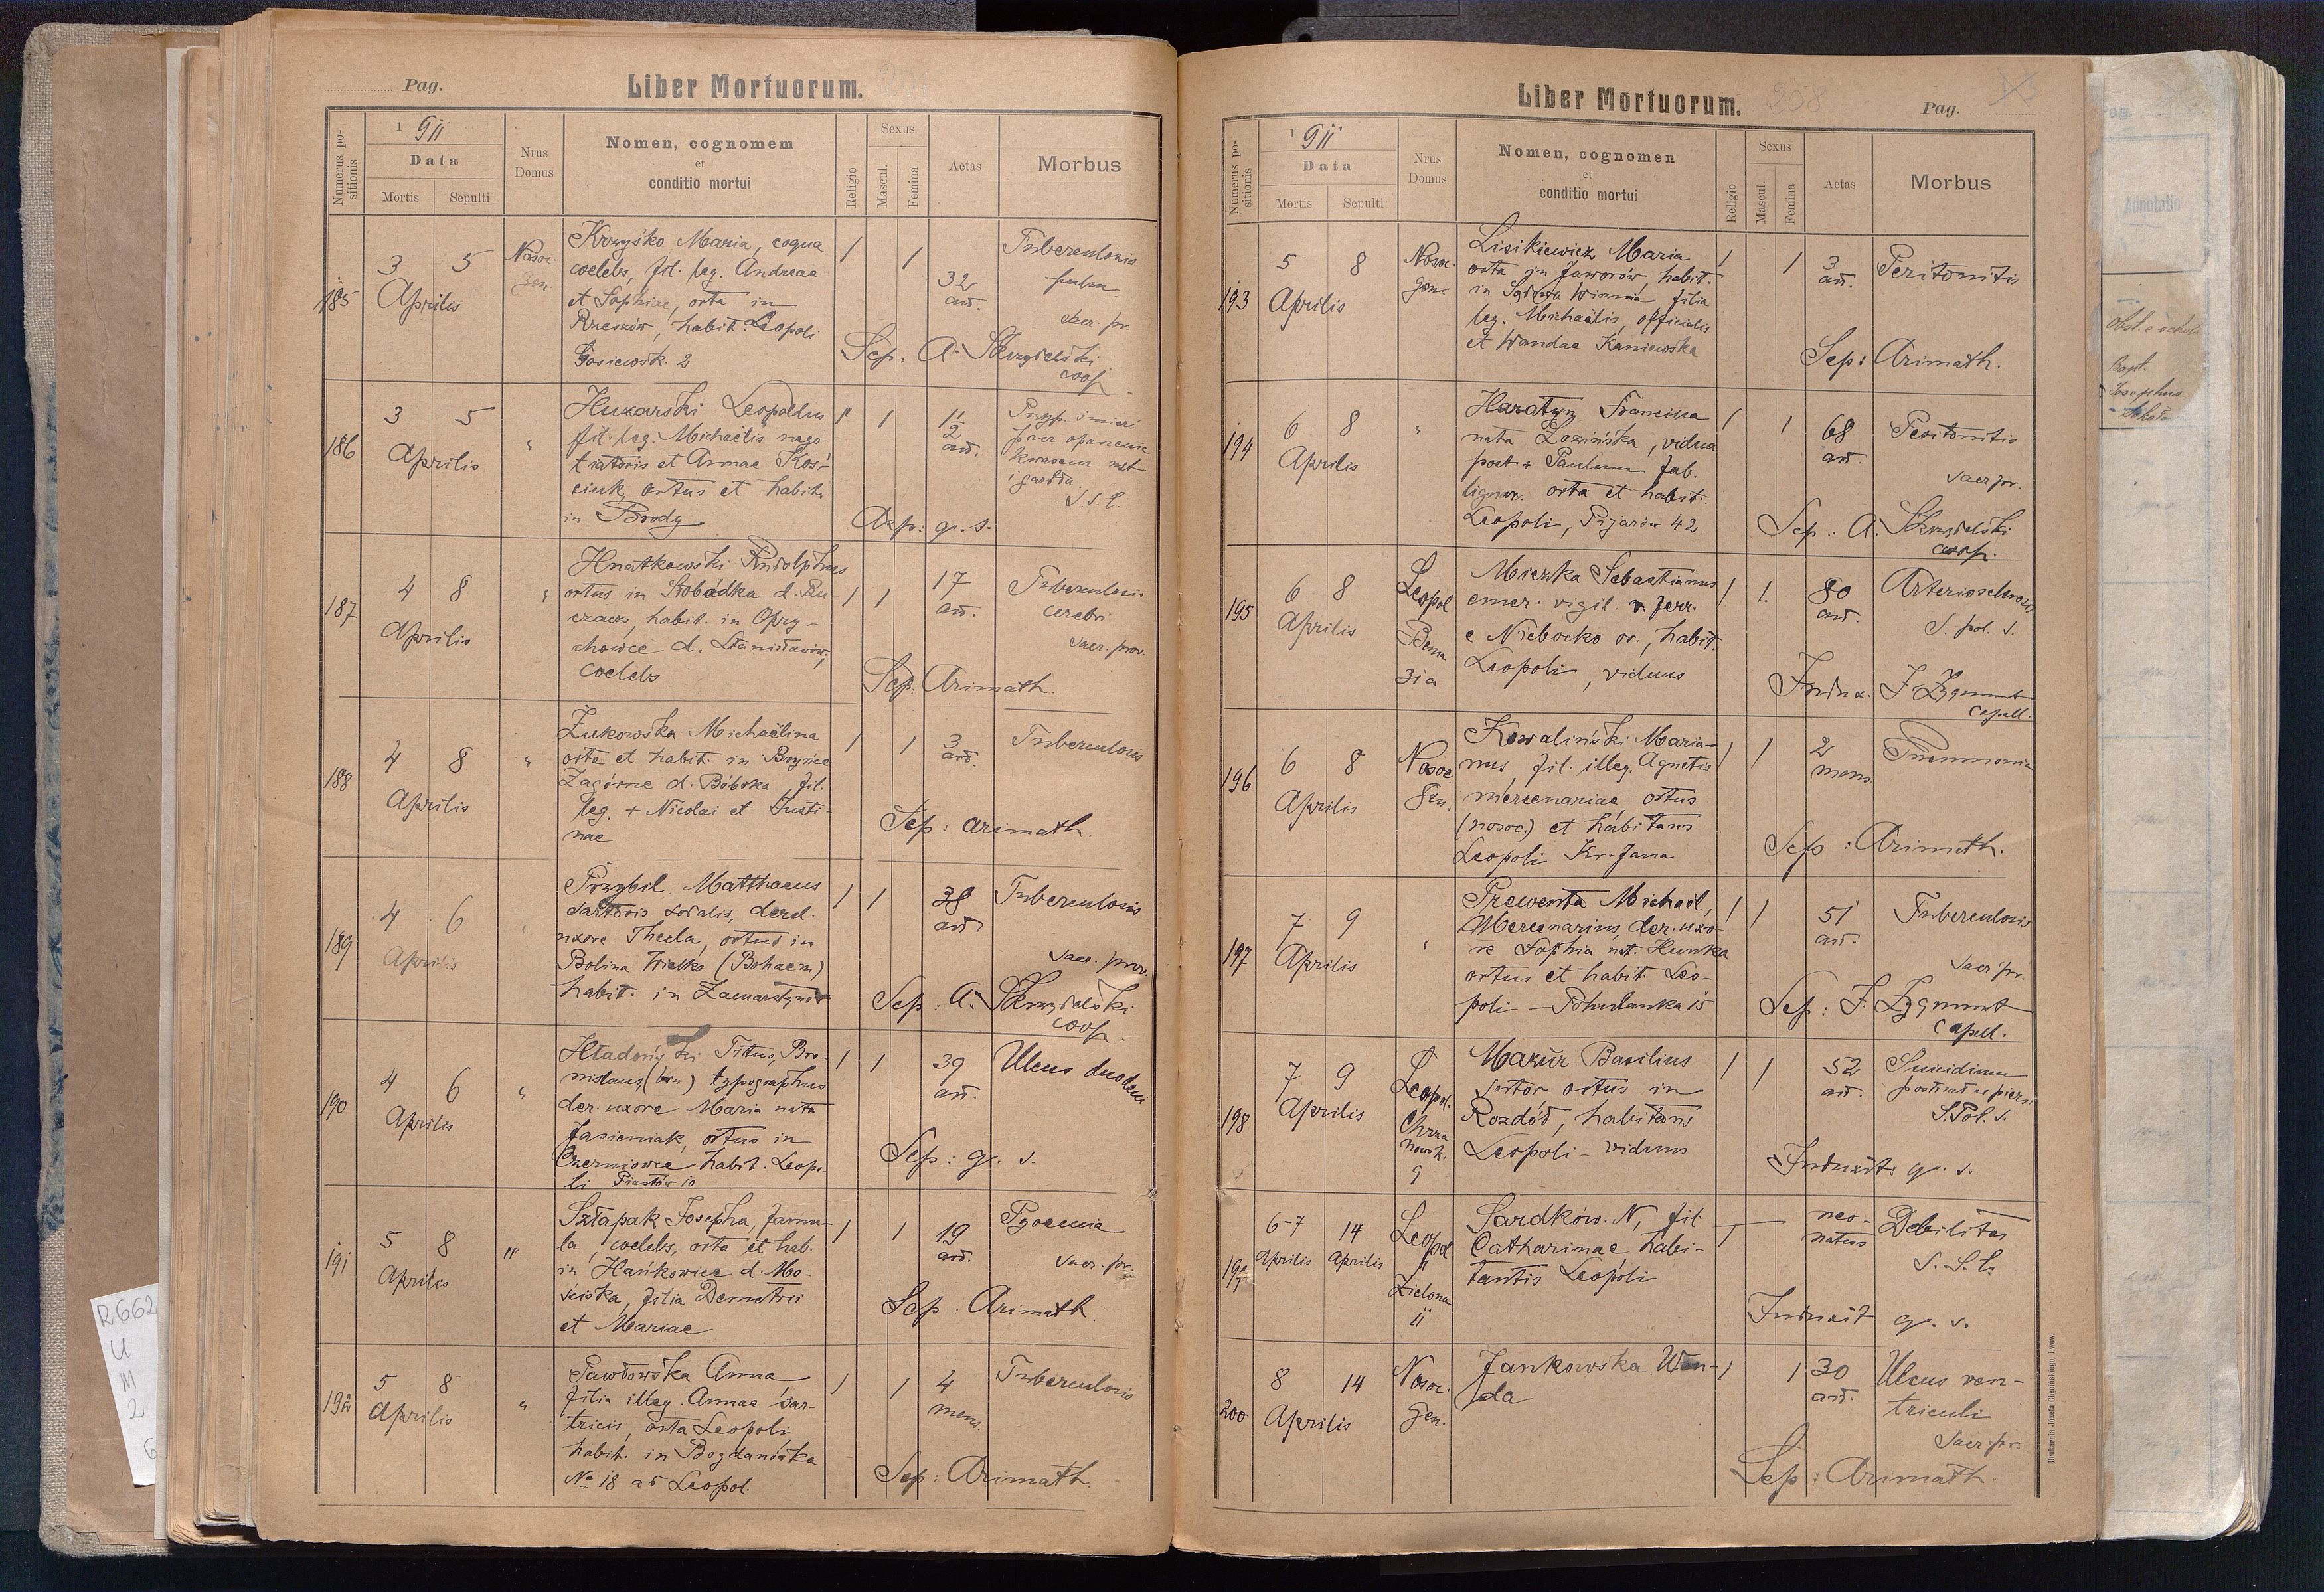 Pag.
Liber Mortuorum.
Numerus positionis
1911
Data
Mortis
Sepulti
Nrus Domus
Nomen, cognomem
et
conditio mortui
Religio
Sexus
Mascul.
Femina
Aetas
Morbus
185
3 5
Aprilis
Nosoc.
gen.
Krzyśko Maria, coqua
coelebs, fil. leg. Andreae
et Sophiae, orta in
Rzeszów, habit. Leopoli
Gosiewsk. 2
1 1
32
an.
Tuberculosis
pulm.
Sacr. pr.
Sep: A. Skrzydelski
coop.
186
3 5
Aprilis
"
Huzarski Leopoldus
fil. leg. Michaëlis nego-
tiatoris et Annae Koś-
ciuk, ortus et habit.
in Brody
1
1 1/2
an.
Przyp. śmierć
przez oparzenie
kwasem ust
i gardła
S. S. t.
Asp: q. s.
187
4 8
Aprilis
"
Hnatkowski Rudolphus
ortus in Słobódka d. Bu-
czacz, habit. in Opry-
chowce d. Stanisławów,
coelebs
1 1
17
an.
Tuberculosis
cerebri
Sacr. prov.
Sep: Arimath.
188
4 8
Aprilis
"
Żukowska Michaëlina
orta et habit. in Bryńce
Zagórne d. Bóbrka, fil.
leg. + Nicolai et Justi-
nae
1 1
3
an.
Tuberculosis
Sep: Arimath.
189
4 6
Aprilis
Przybil Matthaeus
sartoris sodalis, derel.
uxore Thecla, ortus in
Bolina Wielka (Bohaem)
habit. in Zamarstynów
1 1
38
an.
Tuberculosis
Sacr. prov.
Sep: A. Skrzydelski
coop.
190
4 6
Aprilis
"
Hładoński Titus, Bro-
nislaus, (bin) typographus
der. uxore Maria nata
Jasieniak, ortus in
Czerniowce habit. Leopo-
li Piastów 10
1 1
39
an.
Ulcus duodeni
Sep: q. s.
191
5 8
Aprilis
"
Szłapak Josepha, famu-
la, coelebs, orta et hab.
in Hańkowice d. Mo-
ściska, filia Demetrii
et Mariae
1 1
19
an.
Pyoemia
Sacr. pr.
Sep: Arimath.
192
5 8
Aprilis
"
Pawłowska Anna
filia illeg. Annae sar-
tricis, orta Leopoli
habit. in Bogdanówka
No 18 ad Leopol.
1 1
4
mens.
Tuberculosis
Sep: Arimath.
Liber Mortuorum.
208
Pag.
Numerus positionis
1911
Data
Mortis
Sepulti
Nrus Domus
Nomen, cognomen
et
conditio mortui
Religio
Sexus
Mascul.
Femina
Aetas
Morbus
193
5 8
Aprilis
Nosoc.
gen.
Lisikiewicz Maria
orta in Jaworów, habit.
in Sądowa Wisznia filia
leg. Michaëlis, officialis
et Wandae Kaniewska
1 1
3
an.
Peritonitis
Sep: Arimath.
194
6 8
Aprilis
"
Haratyn Francisca
nata Łozińska, vidua
post + Paulum fab.
lignar. orta et habit.
Leopoli, Pijarów 42
1 1
68
an.
Peritonitis
Sacr. pr.
Sep: A. Skrzydelski
coop.
195
6 8
Aprilis
Leopol
Bema
31a
Miezka Sebastianus
emer. vigil. v. ferr.
e Niebocko or., habit.
Leopoli, viduus
1 1.
80
an.
Arteriosclerosis
S. pol. s.
Indux. J. Zygmunt
Capell.
196
6 8
Aprilis
Nosoc.
Gen.
Kowaliński Maria-
nus, fil. illeg. Agnetis
mercenariae, ortus
(nosoc.) et habitans
Leopoli Kr. Jana
1 1
2
mens.
Pneumonia
Sep: Arimath.
197
7 9
Aprilis
"
Prewenta Michaël,
Mercenarius, der. uxo-
re Sophia nat. Hunka
ortus et habit. Leo-
poli - Pohulanka 15
1 1
51
an.
Tuberculosis
Sacr. pr.
Sep: J. Zygmunt
Capell.
198
7 9
Aprilis
Leopol.
Chrza
nowsk.
9
Mazur Basilius
sutor, ortus in
Rozdół, habitans
Leopoli - viduus
1 1
52
an.
Suicidium
postrzał w piersi
S. Pol. s.
Induxit: q. s.
199
6-7 14
Aprilis Aprilis
Leopol
Zielona
11
Sardków. N, fil.
Catharinae habi-
tantis Leopoli
neo-
natus
Debilitas
S. S. t.
Induxit q. s.
200
8 14
Aprilis
Nosoc.
Gen.
Jankowska Wan-
da
1 1
30
an.
Ulcus ven-
triculi
Sacr. pr.
Sep: Arimath.
Drukarnia Józefa Chęcińskiego, Lwów.
Adnotatio
Bapt.
Josephus
R662
U
M
2
6